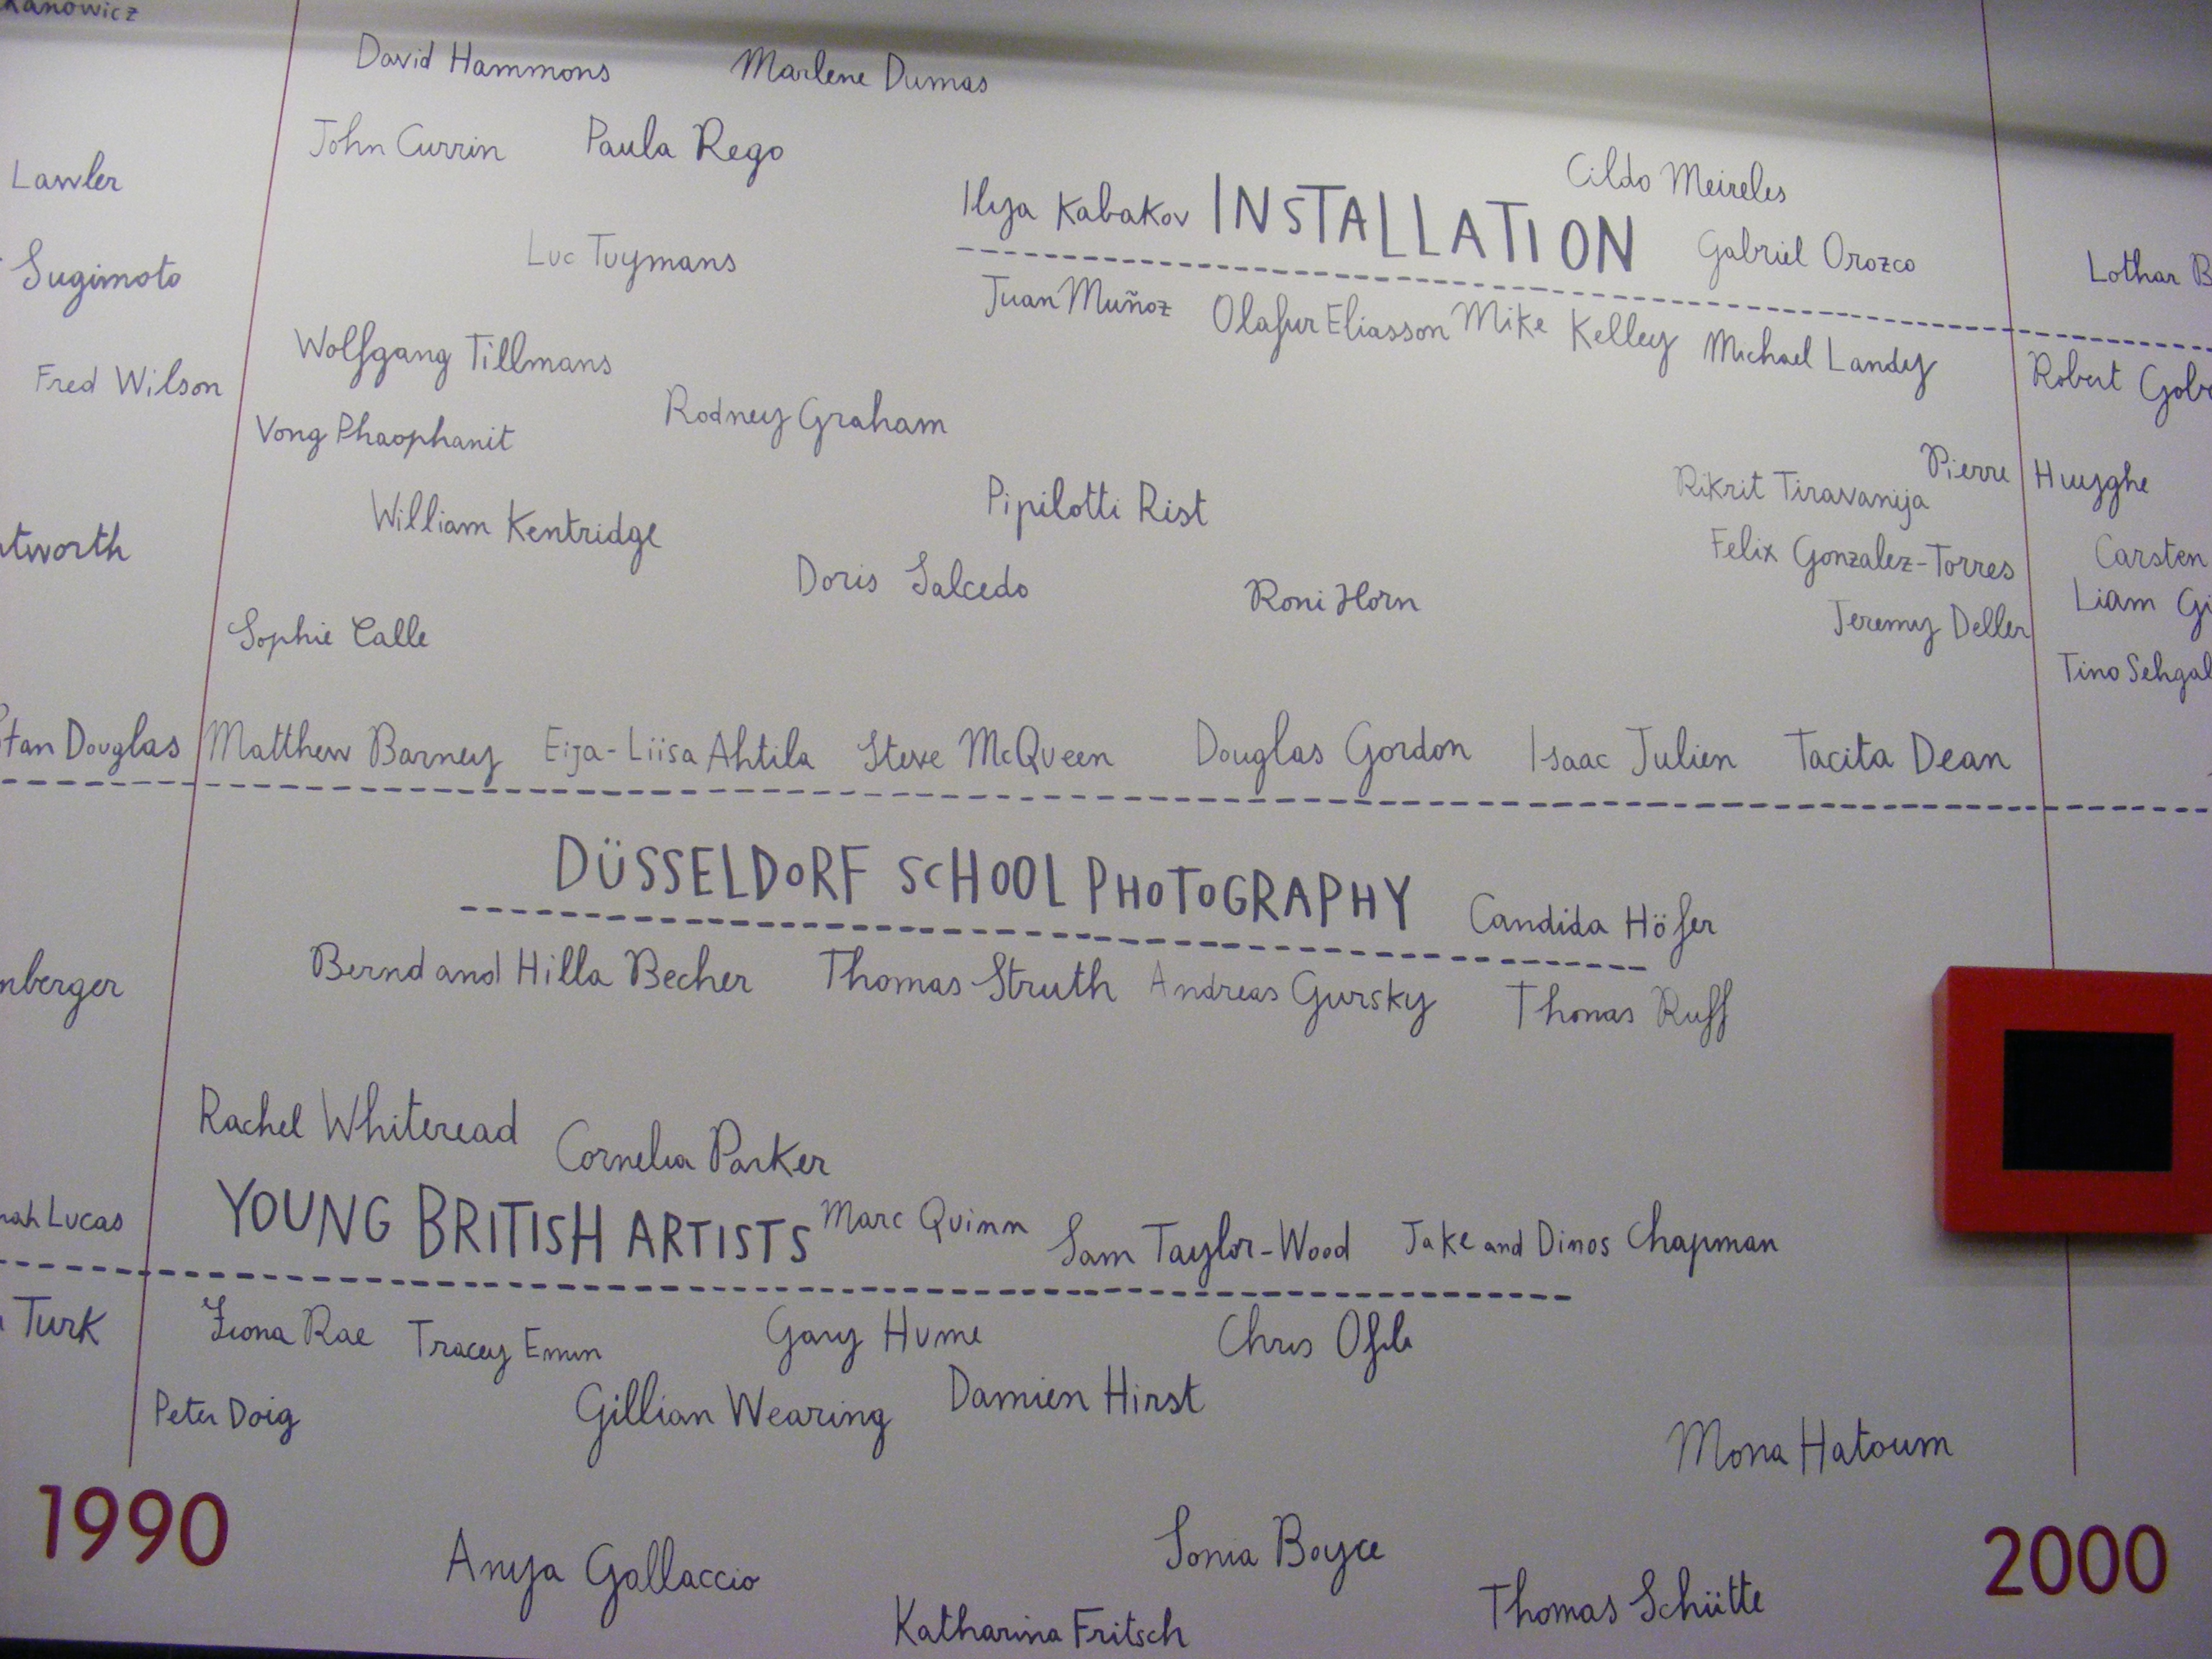 kanowicz
David Hammons Marlene Dumas
John Currin Paula Rego
Lawler
Cildo Meireles
Ilya Kabakov INSTALLATION
Gabriel Orozco
Sugimoto
Luc Tuymans
Lothar B
Juan Muñoz Olafur Eliasson Mike Kelley Michael Landy
Wolfgang Tillmans
Fred Wilson
Robert Gobe
Rodney Graham
Vong Phaophanit
Pierre Huyghe
Rikrit Tiravanija
Pipilotti Rist
William Kentridge
tworth
Felix Gonzalez-Torres
Carsten
Doris Salcedo
Roni Horn
Liam Gi
Sophie Calle
Jeremy Deller
Tino Sehgal
tan Douglas Matthew Barney Eija-Liisa Ahtila Steve McQueen Douglas Gordon Isaac Julien Tacita Dean
DÜSSELDORF SCHOOL PHOTOGRAPHY
Candida Höfer
nberger
Bernd and Hilla Becher Thomas Struth Andreas Gursky Thomas Ruff
Rachel Whiteread Cornelia Parker
ah Lucas
YOUNG BRITISH ARTISTS Marc Quinn Sam Taylor-Wood Jake and Dinos Chapman
Turk Fiona Rae Tracey Emin Gary Hume Chris Ofili
Peter Doig Gillian Wearing Damien Hirst
Mona Hatoum
1990
2000
Anya Gallaccio
Sonia Boyce
Katharina Fritsch
Thomas Schütte